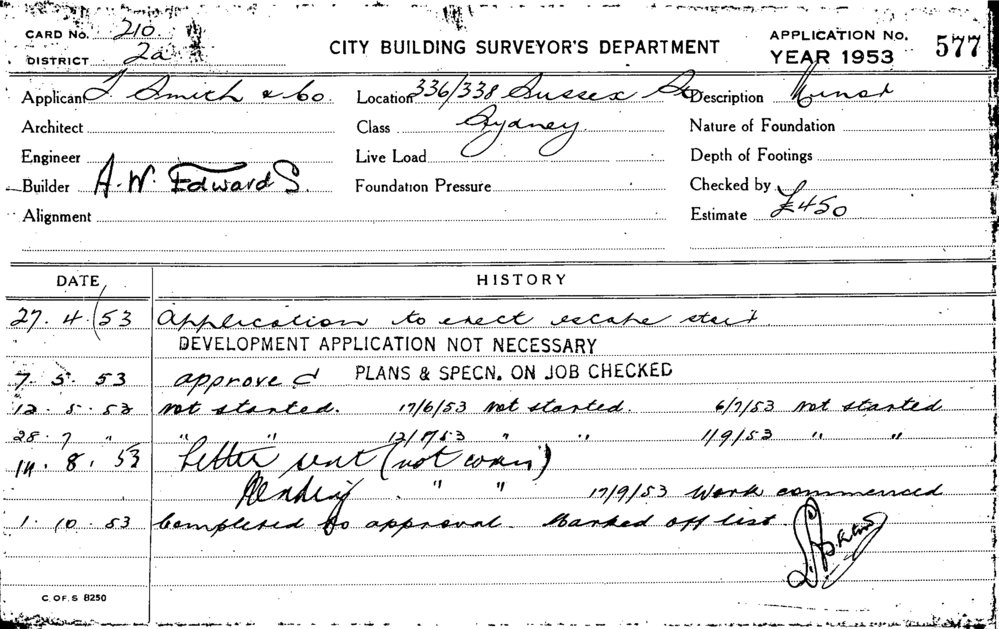 CARD No. 210
DISTRICT 2a
CITY BUILDING SURVEYOR'S DEPARTMENT
APPLICATION No. 577
YEAR 1953
Applicant T Smith & Co. Location 336/338 Sussex St Description Minor
Architect Class Sydney Nature of Foundation
Engineer Live Load Depth of Footings
Builder A. W. Edwards. Foundation Pressure Checked by
Alignment Estimate £450
DATE HISTORY
27. 4. 53 Application to erect escape stair
DEVELOPMENT APPLICATION NOT NECESSARY
7. 5. 53 approved PLANS & SPECN. ON JOB CHECKED
12. 5. 53 Not started. 17/6/53 Not started. 6/7/53 Not started
28. 7 " " " 12/7/53 " " 1/9/53 " "
14. 8. 53 Letter sent (not com)
Pending . " " 17/9/53 Work commenced
1. 10. 53 Completed to approval. Marked off list
C. OF. S 8250